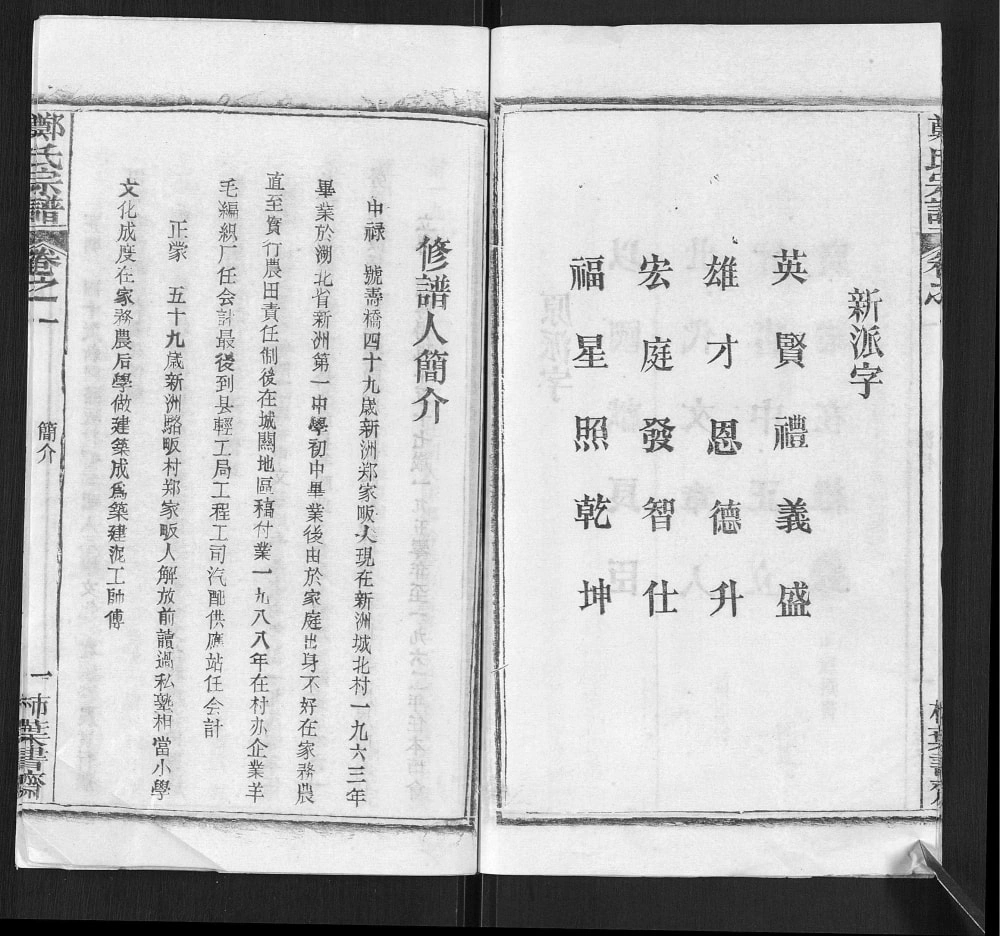 鄭氏宗譜
卷之一
新派字
英賢禮義盛
雄才恩德升
宏庭發智仕
福星照乾坤
修譜人簡介
申禄 號壽橋四十九歲新洲郑家畈人現在新洲城北村一九六三年
畢業於湖北省新洲第一中學初中畢業後由於家庭出身不好在家務農
直至實行農田責任制後在城關地區稿付業一九八八年在村办企業羊
毛編織厂任会計最後到县輕工局工程工司汽配供應站任会計
正蒙 五十九歲新洲駱畈村郑家畈人解放前讀過私塾相當小學
文化成度在家務農后學做建築成爲築建泥工師傅
鄭氏宗譜
卷之一
簡介
一
柿葉書齋